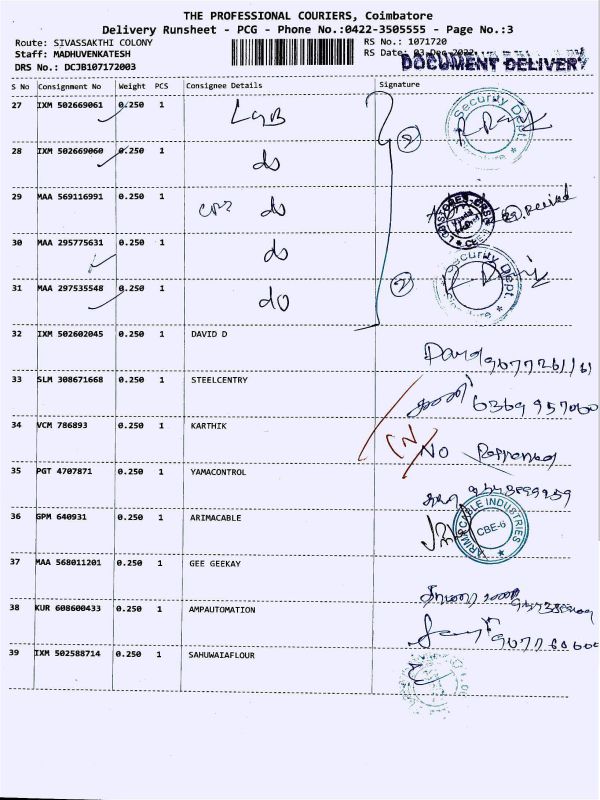 THE PROFESSIONAL COURIERS, Coimbatore
Delivery Runsheet - PCG - Phone No.:0422-3505555 - Page No.:3
Route: SIVASSAKTHI COLONY RS No.: 1071720
Staff: MADHUVENKATESH RS Date: 03-Dec-2022
DRS No.: DCJB107172003 DOCUMENT DELIVERY
S No Consignment No Weight PCS Consignee Details Signature
27 IXM 502669061 0.250 1 LGB
Security Dept.
28 IXM 502669060 0.250 1 do 2
29 MAA 569116991 0.250 1 do
30 MAA 295775631 0.250 1 do
Security Dept.
31 MAA 297535548 0.250 1 do 2
32 IXM 502602045 0.250 1 DAVID D
33 SLM 308671668 0.250 1 STEELCENTRY
6369 957060
34 VCM 786893 0.250 1 KARTHIK
No
35 PGT 4707871 0.250 1 YAMACONTROL
36 GPM 640931 0.250 1 ARIMACABLE
ARIMA CABLE INDUSTRIES
CBE-6
37 MAA 568011201 0.250 1 GEE GEEKAY
38 KUR 608600433 0.250 1 AMPAUTOMATION
39 IXM 502588714 0.250 1 SAHUWAIAFLOUR